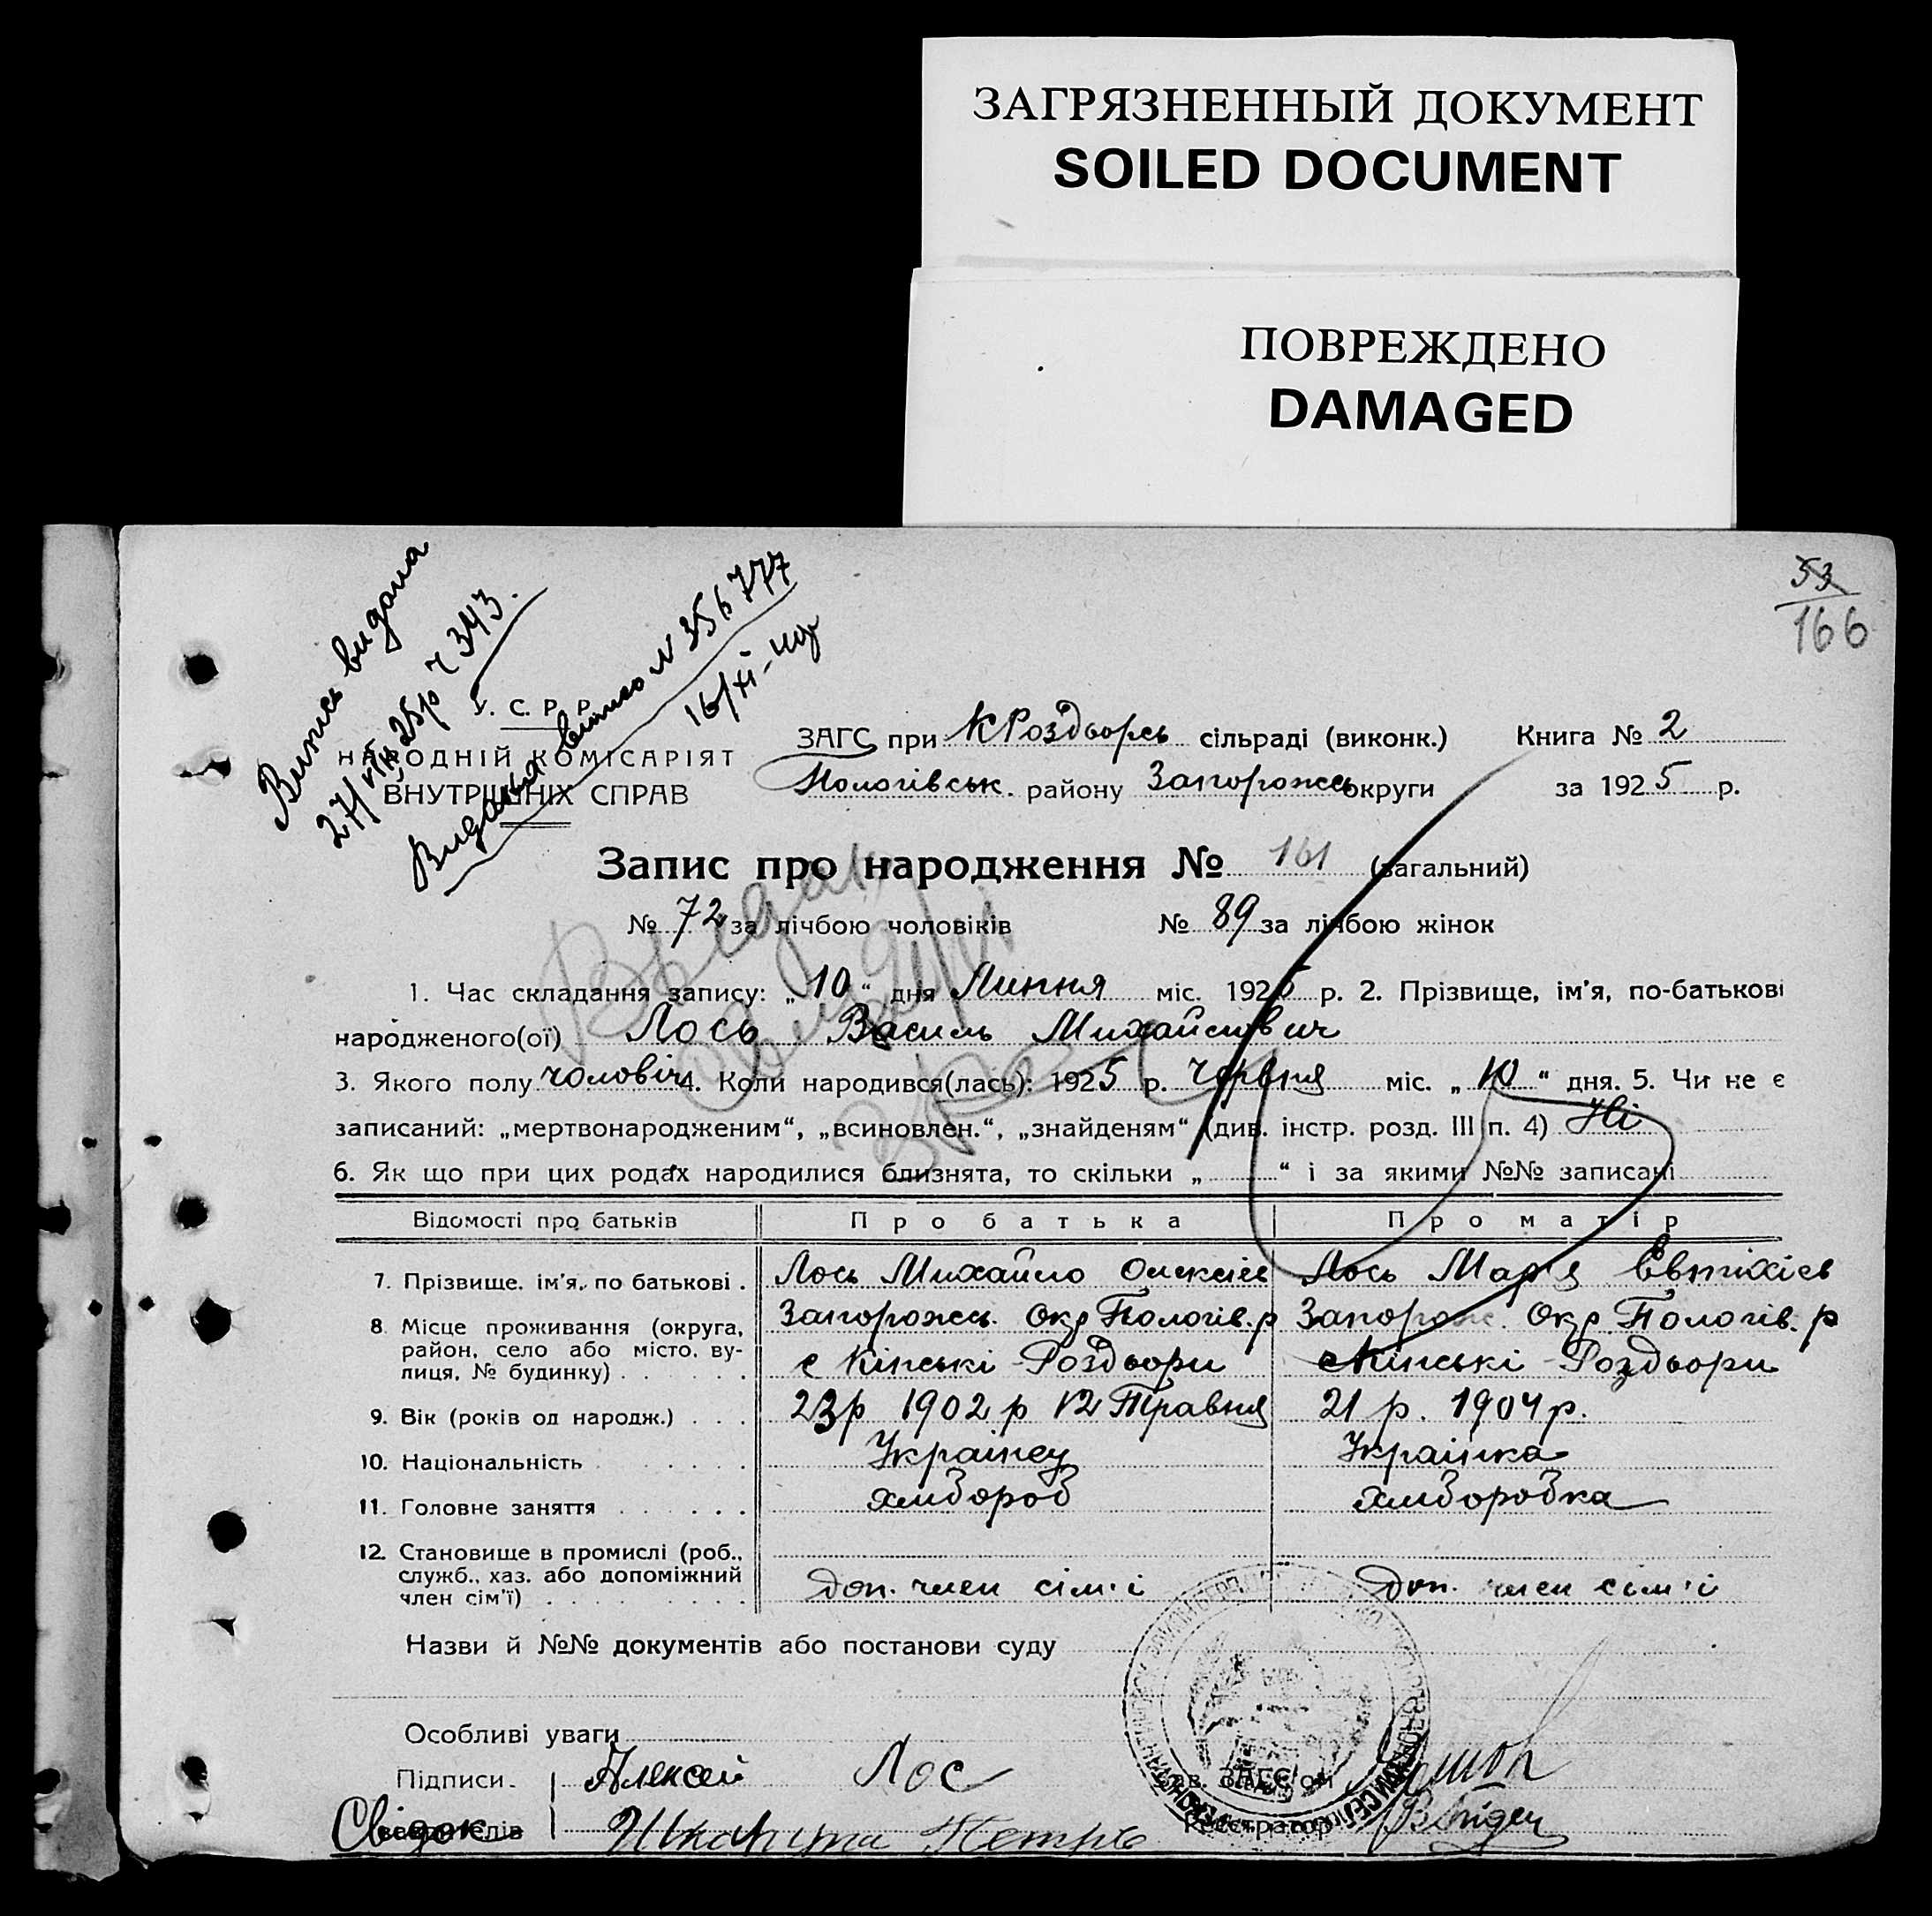 ЗАГРЯЗНЕННЫЙ ДОКУМЕНТ
SOILED DOCUMENT
ПОВРЕЖДЕНО
DAMAGED
53
166
Випись видана
27/VII 25р ч 343.
Видано N 356777
16/XI-
У. С. Р. Р.
НАРОДНІЙ КОМІСАРІЯТ
ВНУТРІШНІХ СПРАВ
ЗАГС при К Роздорсь сільраді (виконк.) Книга № 2
Пологівськ. району Запорожсь округи за 1925 р.
Запис про народження № 161 (загальний)
№ 72 за лічбою чоловіків № 89 за лічбою жінок
1. Час складання запису: „10“ дня Липня міс. 1925 р. 2. Прізвище, ім'я, по-батькові
народженого(ої) Лось Василь Михайлович
3. Якого полу чоловіч 4. Коли народився(лась): 1925 р. Червня міс. „10“ дня. 5. Чи не є
записаний: „мертвонародженим“, „всиновлен.“, „знайденям“ (див. інстр. розд. III п. 4) Ні
6. Як що при цих родах народилися близнята, то скільки „ “ і за якими №№ записані
Відомості про батьків Про батька Про матір
7. Прізвище, ім'я, по батькові . Лось Михайло Олексієв Лось Мар'я Евтіхієв
8. Місце проживання (округа, Запорожсь. Окр Пологів. р Запорож. Окр. Пологів. р
район, село або місто, ву-
лиця, № будинку) . . . . . . с Кінські-Роздори с Кінські-Роздори
9. Вік (років од народж.) . . . 23р 1902р 12 Травня 21 р. 1904р.
10. Національність . . . . . . Українец Українка
11. Головне заняття . . . . . . хлібороб хліборобка
12. Становище в промислі (роб.,
служб., хаз. або допоміжний
член сім'ї) . . . . . . . . . доп. член сім'ї доп. член сім'ї
Назви й №№ документів або постанови суду
Особливі уваги
Підписи Алексей Лос зав. ЗАГС'ом
Свідок Петро Реєстратор